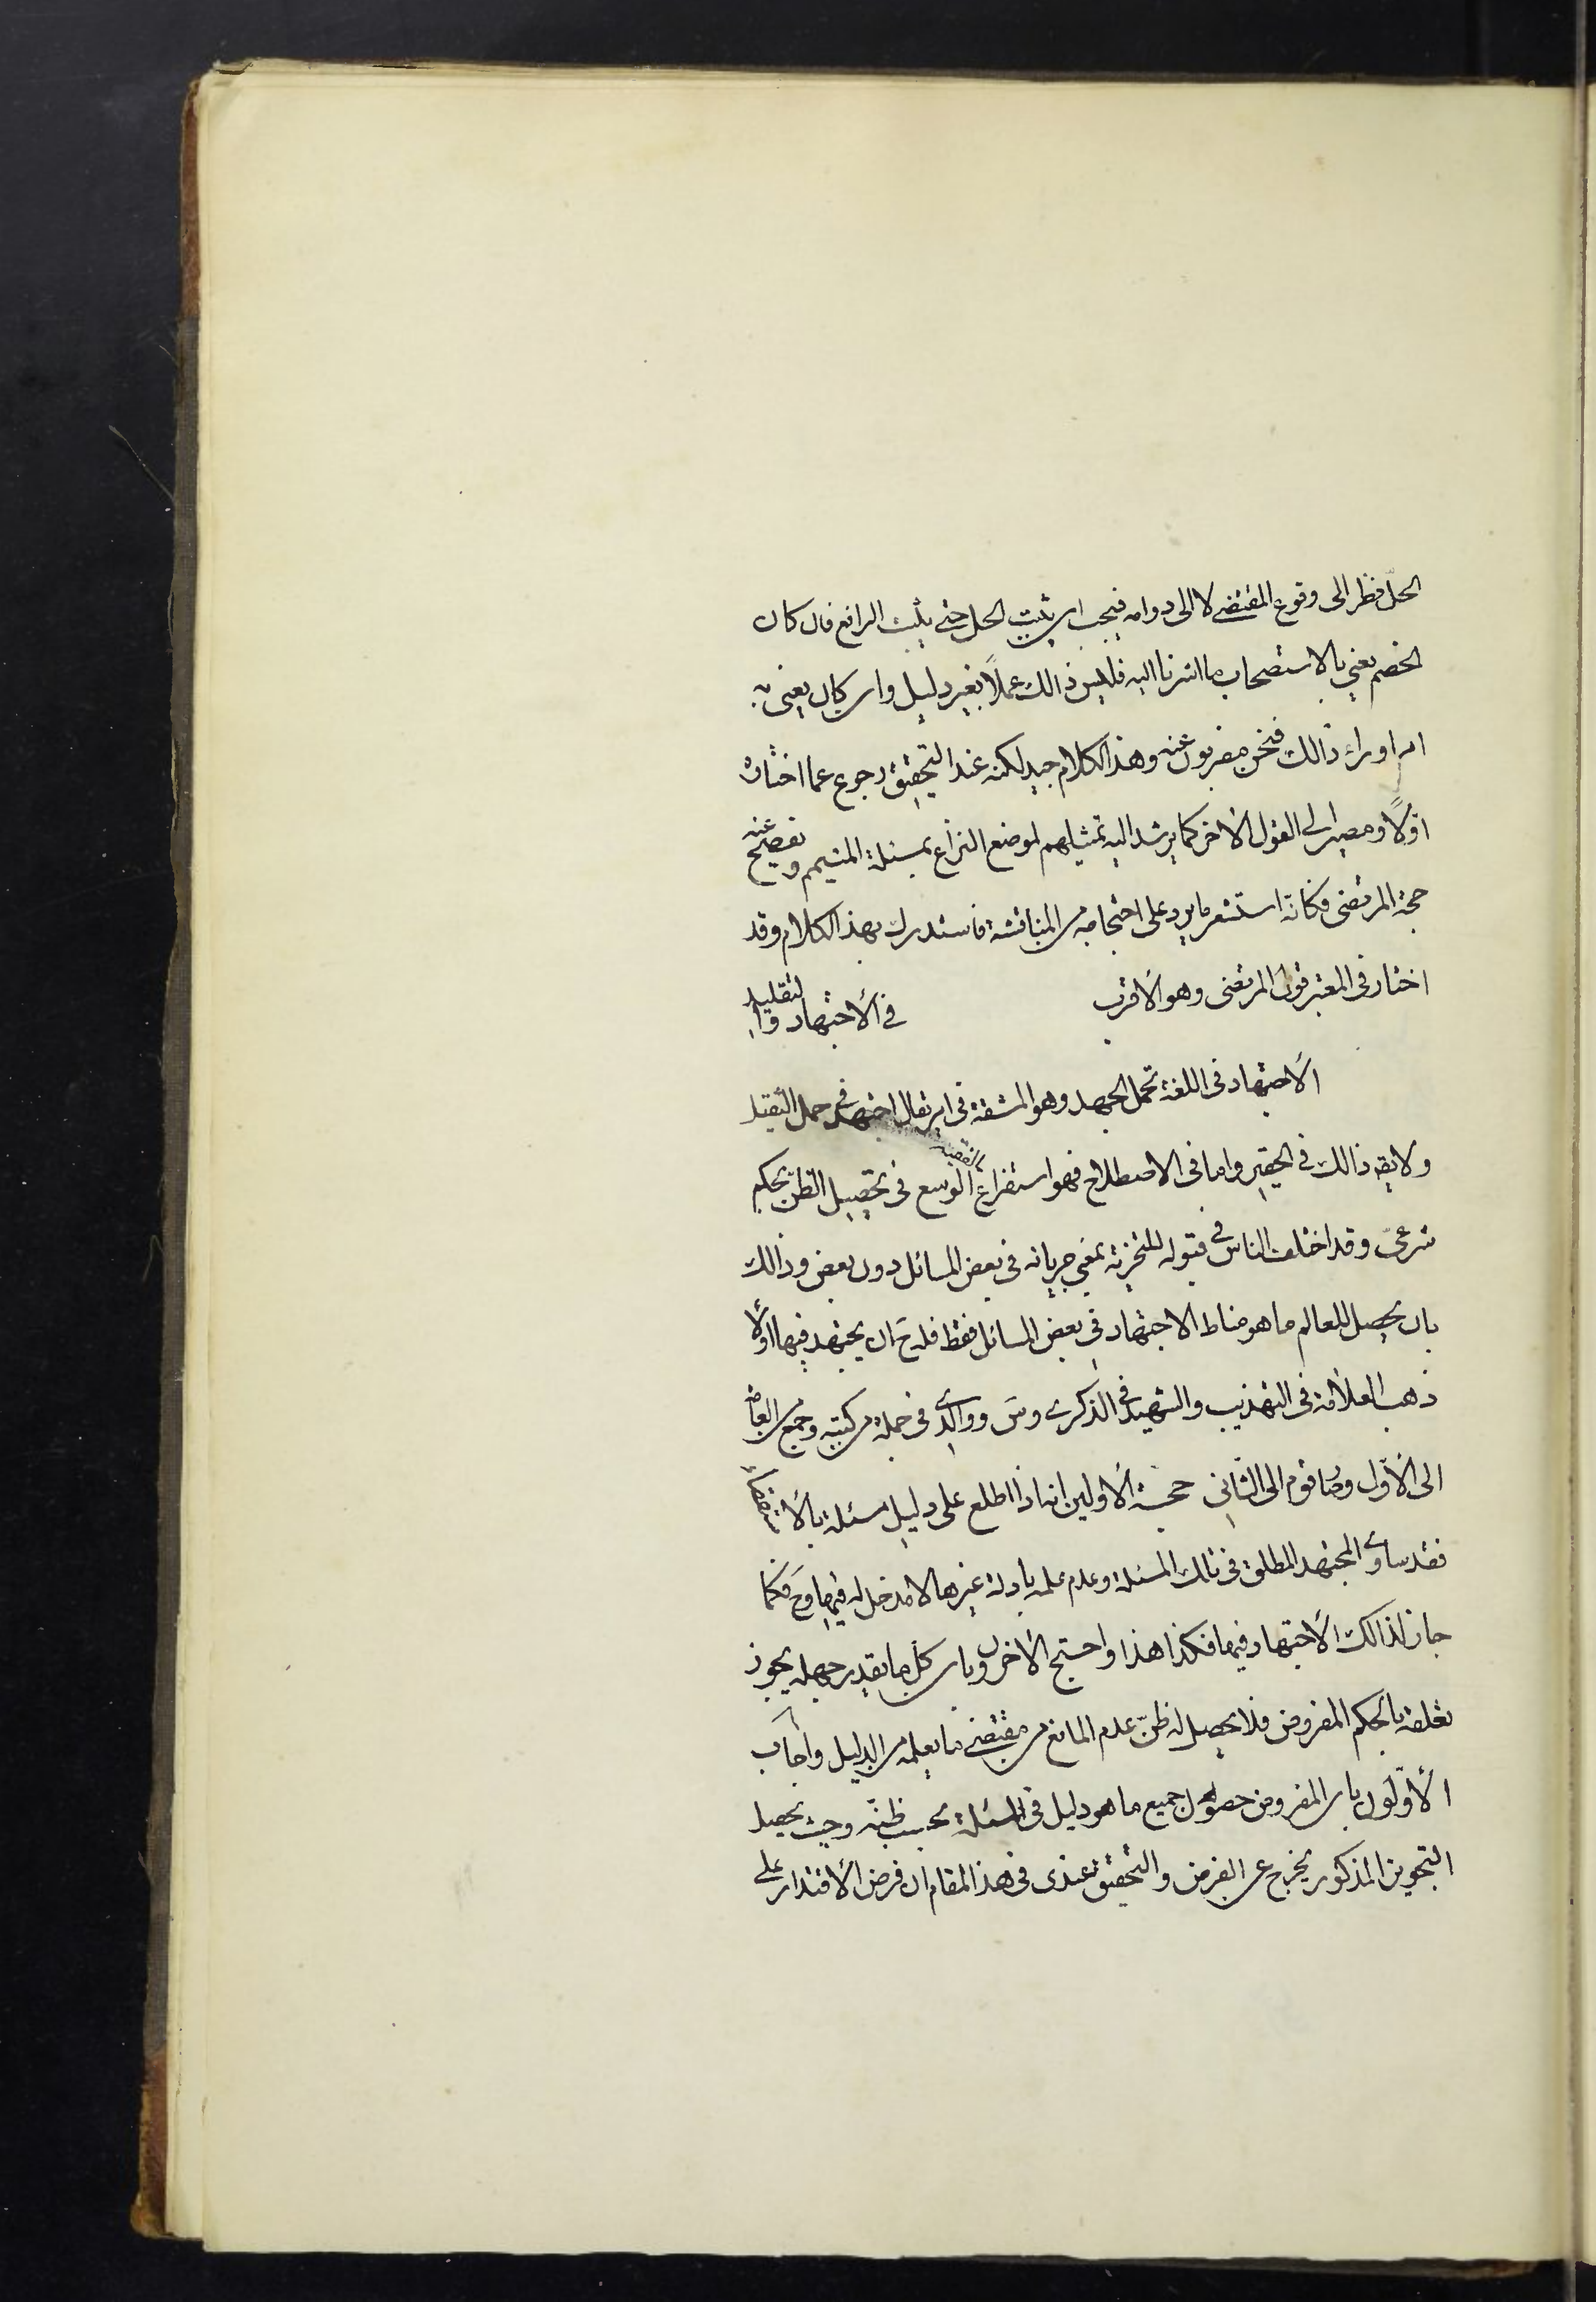 الحلّ نظر الى وقوع المقتضى لا الى دوامه فيجب ان يثبت الحل حتى يثبت الرافع فان كان
الخصم يعنى بالاستصحاب ما اشرنا اليه فليس ذالك عملاً بغير دليل وان كان يعنى به
امرا وراء ذالك فنحن مضربون عنه وهذا الكلام جيد لكنه عند التحقيق رجوع عما اختاره
اوّلاً ومصير الى القول الأخر كما يرشد اليه تمثيلهم لموضع النزاع بمسئلة المتيمم ويفصح عنه
حجة المرتضى فكانّه استشعر ما يرد على احتجاجه من المناقشة فاستدرك بهذا الكلام وقد
اختار فى المعتبر قول المرتضى وهو الأقرب في الأجتهاد والتقليد
الأجتهاد فى اللغة تحمل الجهد وهو المشقة فى امر يقال اجتهد في حمل الثقيل
ولا يقه ذالك في الحقير واما فى الاصطلاح فهو استفراغ الفقيه الوسع فى تحصيل الظن بحكم
شرعىّ وقد اختلف الناس في قبوله للتجزئة بمعنى جريانه فى بعض المسائل دون بعض وذالك
بان يحصل للعالم ما هو مناط الاجتهاد فى بعض المسائل فقط فله ح ان يجتهد فيها اولا
ذهب العلّامة فى التهذيب والشهيد في الذكرى وس ووالدى فى جملة من كتبه وجمع من العامة
الى الأوّل وصار قوم الى الثانى حجة الأولين انه اذا اطلع على دليل مسئلة بالأستقصاء
فقد ساوى المجتهد المطلق فى تلك المسئلة وعدم علمه بادلة غيرها لا مدخل له فيها وح فكما
جاز لذالك الأجتهاد فيها فكذا هذا واحتج الأخرون بان كل ما يقدر جهله يجوز
تعلقه بالحكم المفروض فلا يحصل له ظنّ عدم المانع من مقتضى ما يعلمه من الدليل واجاب
الأوّلون بان المفروض حصول جميع ما هو دليل فى المسئلة بحسب ظنّه وحيث يحصل
التجويز المذكور يخرج عن الفرض والتحقيق عندى فى هذا المقام ان فرض الأقتدار على